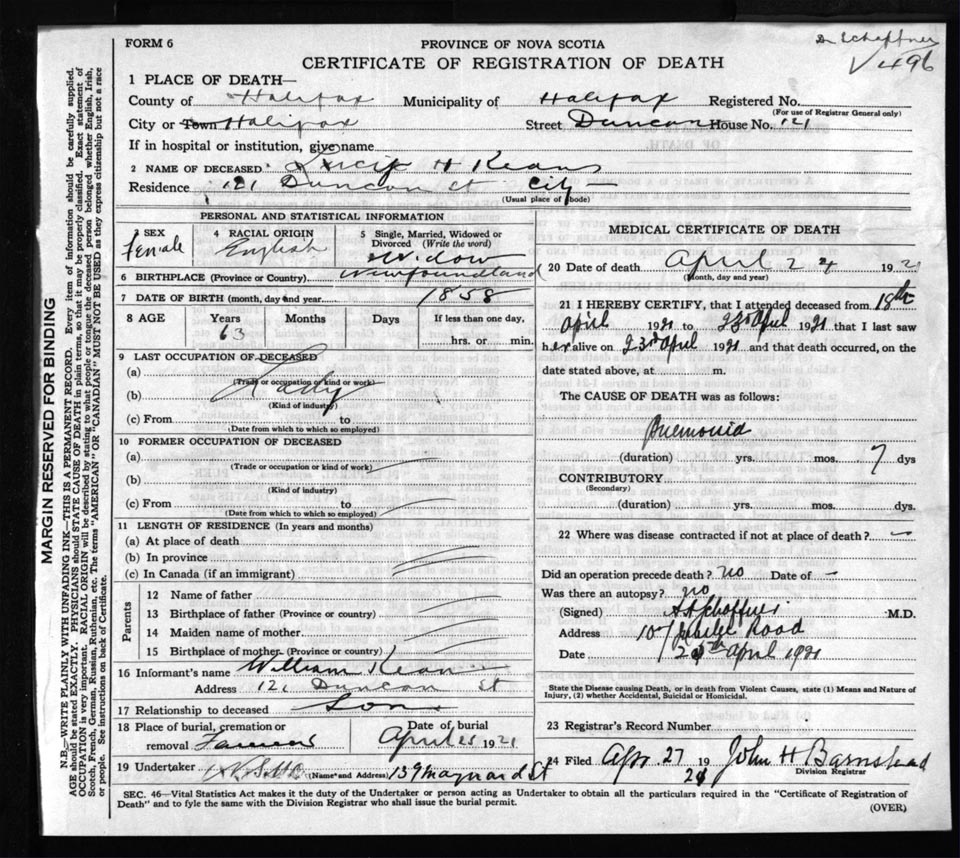 Dr Schaffner
FORM 6
PROVINCE OF NOVA SCOTIA
496
CERTIFICATE OF REGISTRATION OF DEATH
1 PLACE OF DEATH—
County of Halifax Municipality of Halifax Registered No.
(For use of Registrar General only)
City or Town Halifax Street Duncan House No. 121
If in hospital or institution, give name
2 NAME OF DECEASED H Keans
Residence 121 Duncan St City —
(Usual place of abode)
PERSONAL AND STATISTICAL INFORMATION
3 SEX female
4 RACIAL ORIGIN English
5 Single, Married, Widowed or Divorced (Write the word) Widow
6 BIRTHPLACE (Province or Country) Newfoundland
7 DATE OF BIRTH (month, day and year) 1858
8 AGE Years 63 Months Days If less than one day, hrs. or min.
9 LAST OCCUPATION OF DECEASED
(a)
(Trade or occupation or kind or work)
(b) Lady
(Kind of industry)
(c) From to
(Date from which to which so employed)
10 FORMER OCCUPATION OF DECEASED
(a)
(Trade or occupation or kind of work)
(b)
(Kind of industry)
(c) From to
(Date from which to which so employed)
11 LENGTH OF RESIDENCE (In years and months)
(a) At place of death
(b) In province
(c) In Canada (if an immigrant)
Parents
12 Name of father
13 Birthplace of father (Province or country)
14 Maiden name of mother
15 Birthplace of mother (Province or country)
16 Informant's name William Kean
Address 121 Duncan St
17 Relationship to deceased Son
18 Place of burial, cremation or removal
Date of burial April 25 1921
19 Undertaker (Name and Address) 139 Maynard St
MEDICAL CERTIFICATE OF DEATH
20 Date of death April 24 1921
(Month, day and year)
21 I HEREBY CERTIFY, that I attended deceased from 18th
April 1921 to 23rd April 1921 that I last saw
her alive on 23rd April 1921 and that death occurred, on the
date stated above, at m.
The CAUSE OF DEATH was as follows:
Pnemonia
(duration) yrs. mos. 7 dys
CONTRIBUTORY
(Secondary)
(duration) yrs. mos. dys.
22 Where was disease contracted if not at place of death? —
Did an operation precede death? no Date of —
Was there an autopsy? no
(Signed) Schaffner M.D.
Address 107 Road
Date 25th April 1921
State the Disease causing Death, or in death from Violent Causes, state (1) Means and Nature of
Injury, (2) whether Accidental, Suicidal or Homicidal.
23 Registrar's Record Number
24 Filed Apr. 27 19 21 John H Barnstead
Division Registrar
SEC. 46—Vital Statistics Act makes it the duty of the Undertaker or person acting as Undertaker to obtain all the particulars required in the "Certificate of Registration of
Death" and to fyle the same with the Division Registrar who shall issue the burial permit.
(OVER)
MARGIN RESERVED FOR BINDING
N.B.—WRITE PLAINLY WITH UNFADING INK—THIS IS A PERMANENT RECORD. Every item of information should be carefully supplied.
AGE should be stated EXACTLY. PHYSICIANS should STATE CAUSE OF DEATH in plain terms, so that it may be properly classified. Exact statement of
OCCUPATION is very important. RACIAL ORIGIN will be described by stating to what people or tongue the deceased person belonged whether English, Irish,
Scotch, French, German, Russian, Ruthenian, etc. The terms "AMERICAN" OR "CANADIAN" MUST NOT BE USED as they express citizenship but not a race
See instructions on back of Certificate.